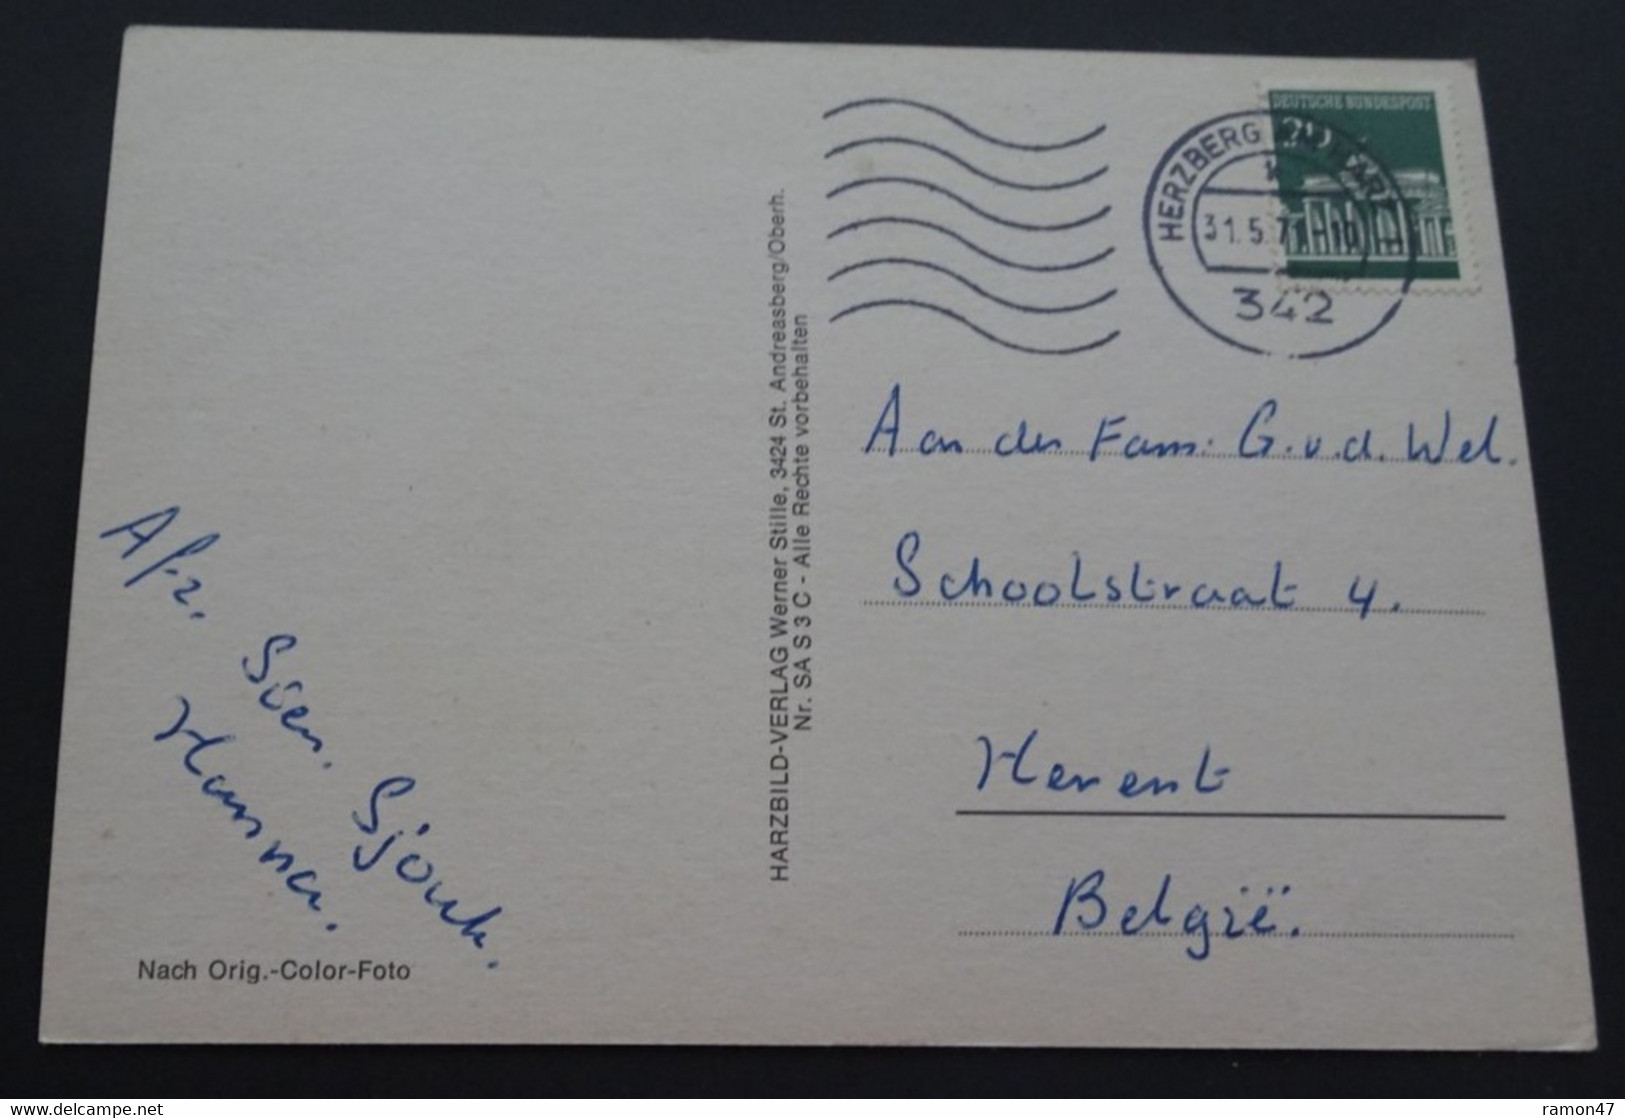 DEUTSCHE BUNDESPOST
20
HERZBERG AM HARZ
31.5.71-10
342
Aan de Fam. G. v. d. Wel.
Schoolstraat 4.
Herent
België.
Afz. Sien. Sjouk.
Hanna.
HARZBILD-VERLAG Werner Stille, 3424 St. Andreasberg/Oberh.
Nr. SA S 3 C - Alle Rechte vorbehalten
Nach Orig.-Color-Foto
delcampe.net
ramon47